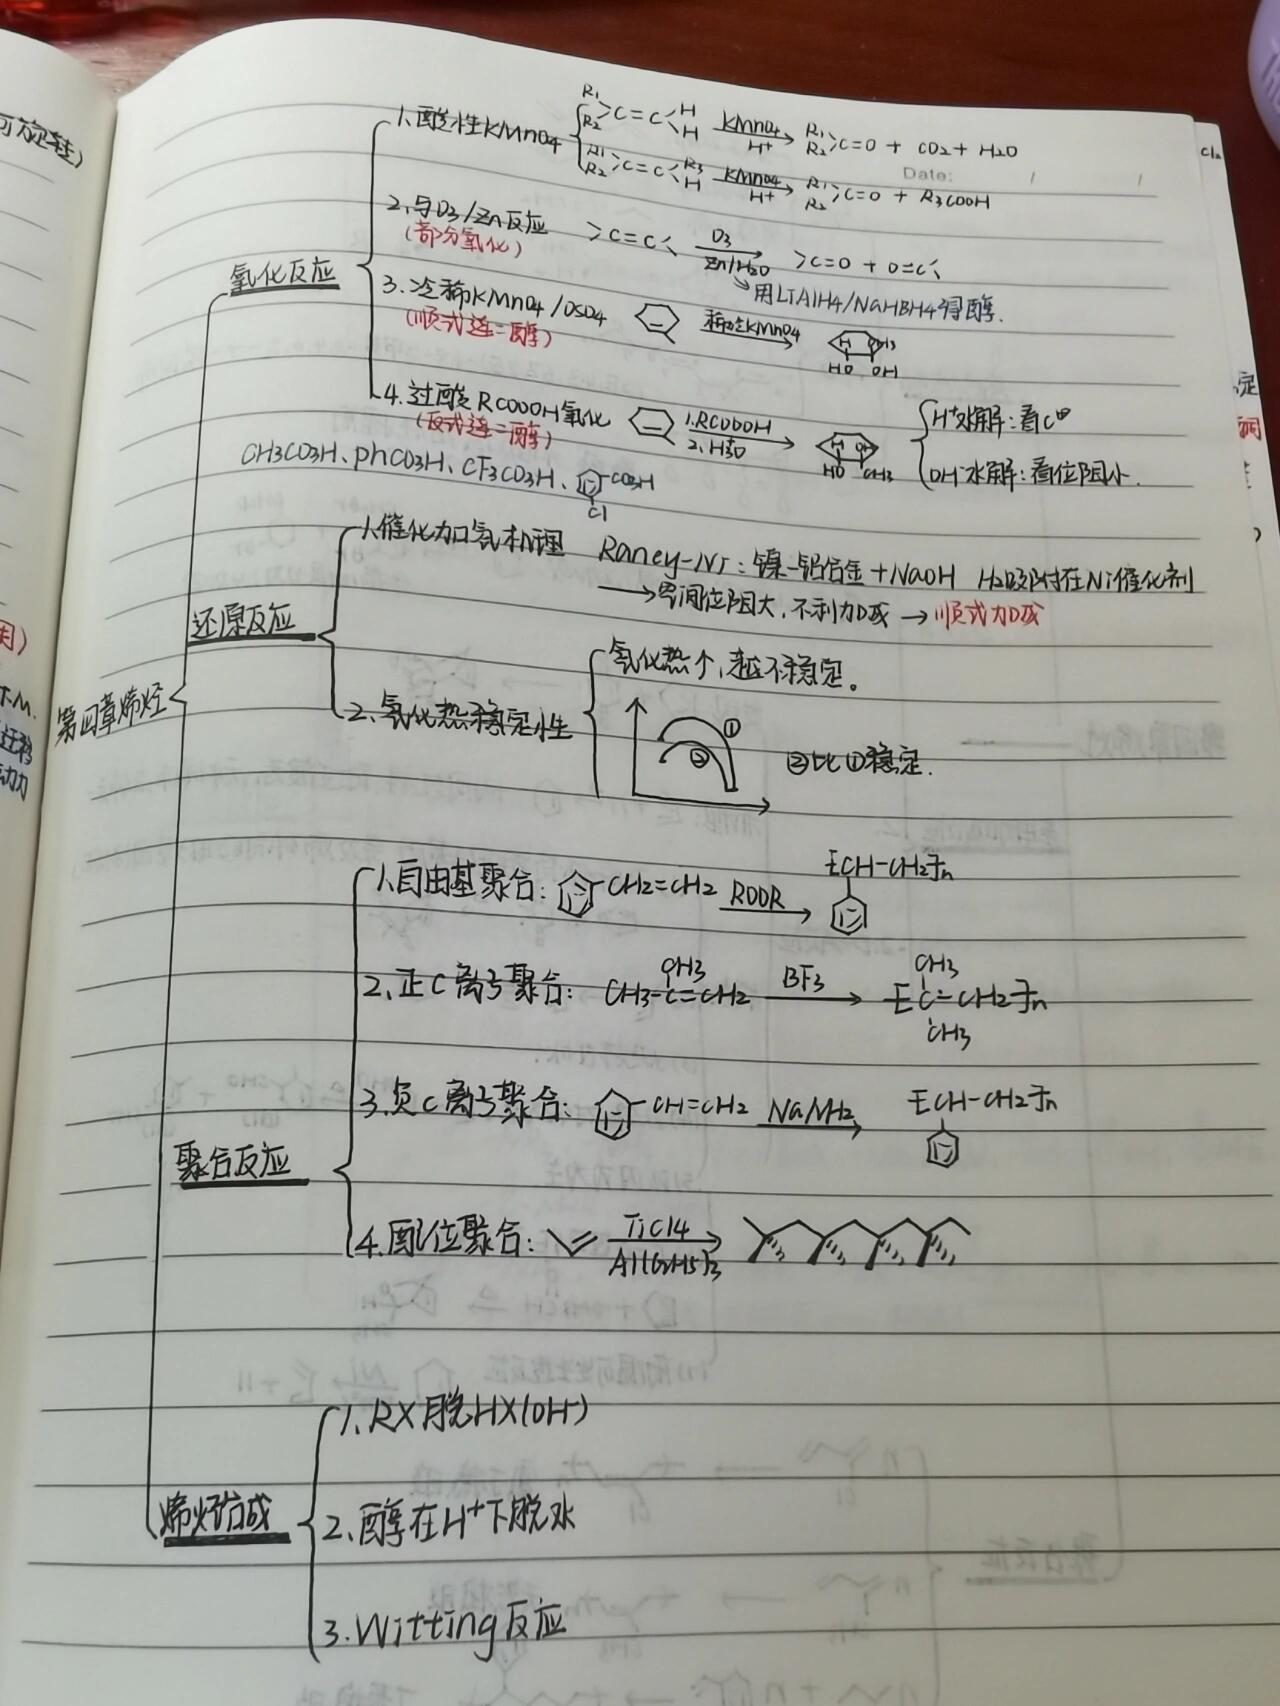 可旋转)
Date: / /
1.酸性KMnO4
R1 R2 >C=C< H H KMnO4 H+ → R1 R2 >C=O + CO2 + H2O
R1 R2 >C=C< R3 H KMnO4 H+ → R1 R2 >C=O + R3COOH
2.与O3/Zn反应 >C=C< O3 Zn/H2O → >C=O + O=C<
(部分氧化)
↘用LiAlH4/NaHBH4得醇.
氧化反应
3.冷稀KMnO4/OSO4 稀冷KMnO4 → H CH3 HO OH
(顺式连二醇)
4.过酸RCOOOH氧化 1.RCOOOH 2.H3O → H OH HO CH3
(反式连二醇)
H+水解:看C⊕
OH-水解:看位阻小.
CH3CO3H、phCO3H、CF3CO3H、 CO3H Cl
1.催化加氢机理 Raney-Ni:镍-铝合金+NaOH H2吸附在Ni催化剂
→空间位阻大,不利加成→顺式加成
还原反应
氢化热↑,越不稳定。
2、氢化热稳定性
① ② ②比①稳定.
第四章烯烃
1.自由基聚合: CH2=CH2 ROOR → [CH-CH2]n
2、正C离子聚合: CH3-C=CH2 CH3 BF3 → [C-CH2]n CH3 CH3
3、负C离子聚合: CH=CH2 NaNH2 → [CH-CH2]n
聚合反应
4.配位聚合: TiCl4 Al(C2H5)3 →
1、RX脱HX(OH-)
烯烃合成
2、醇在H+下脱水
3.Witting反应